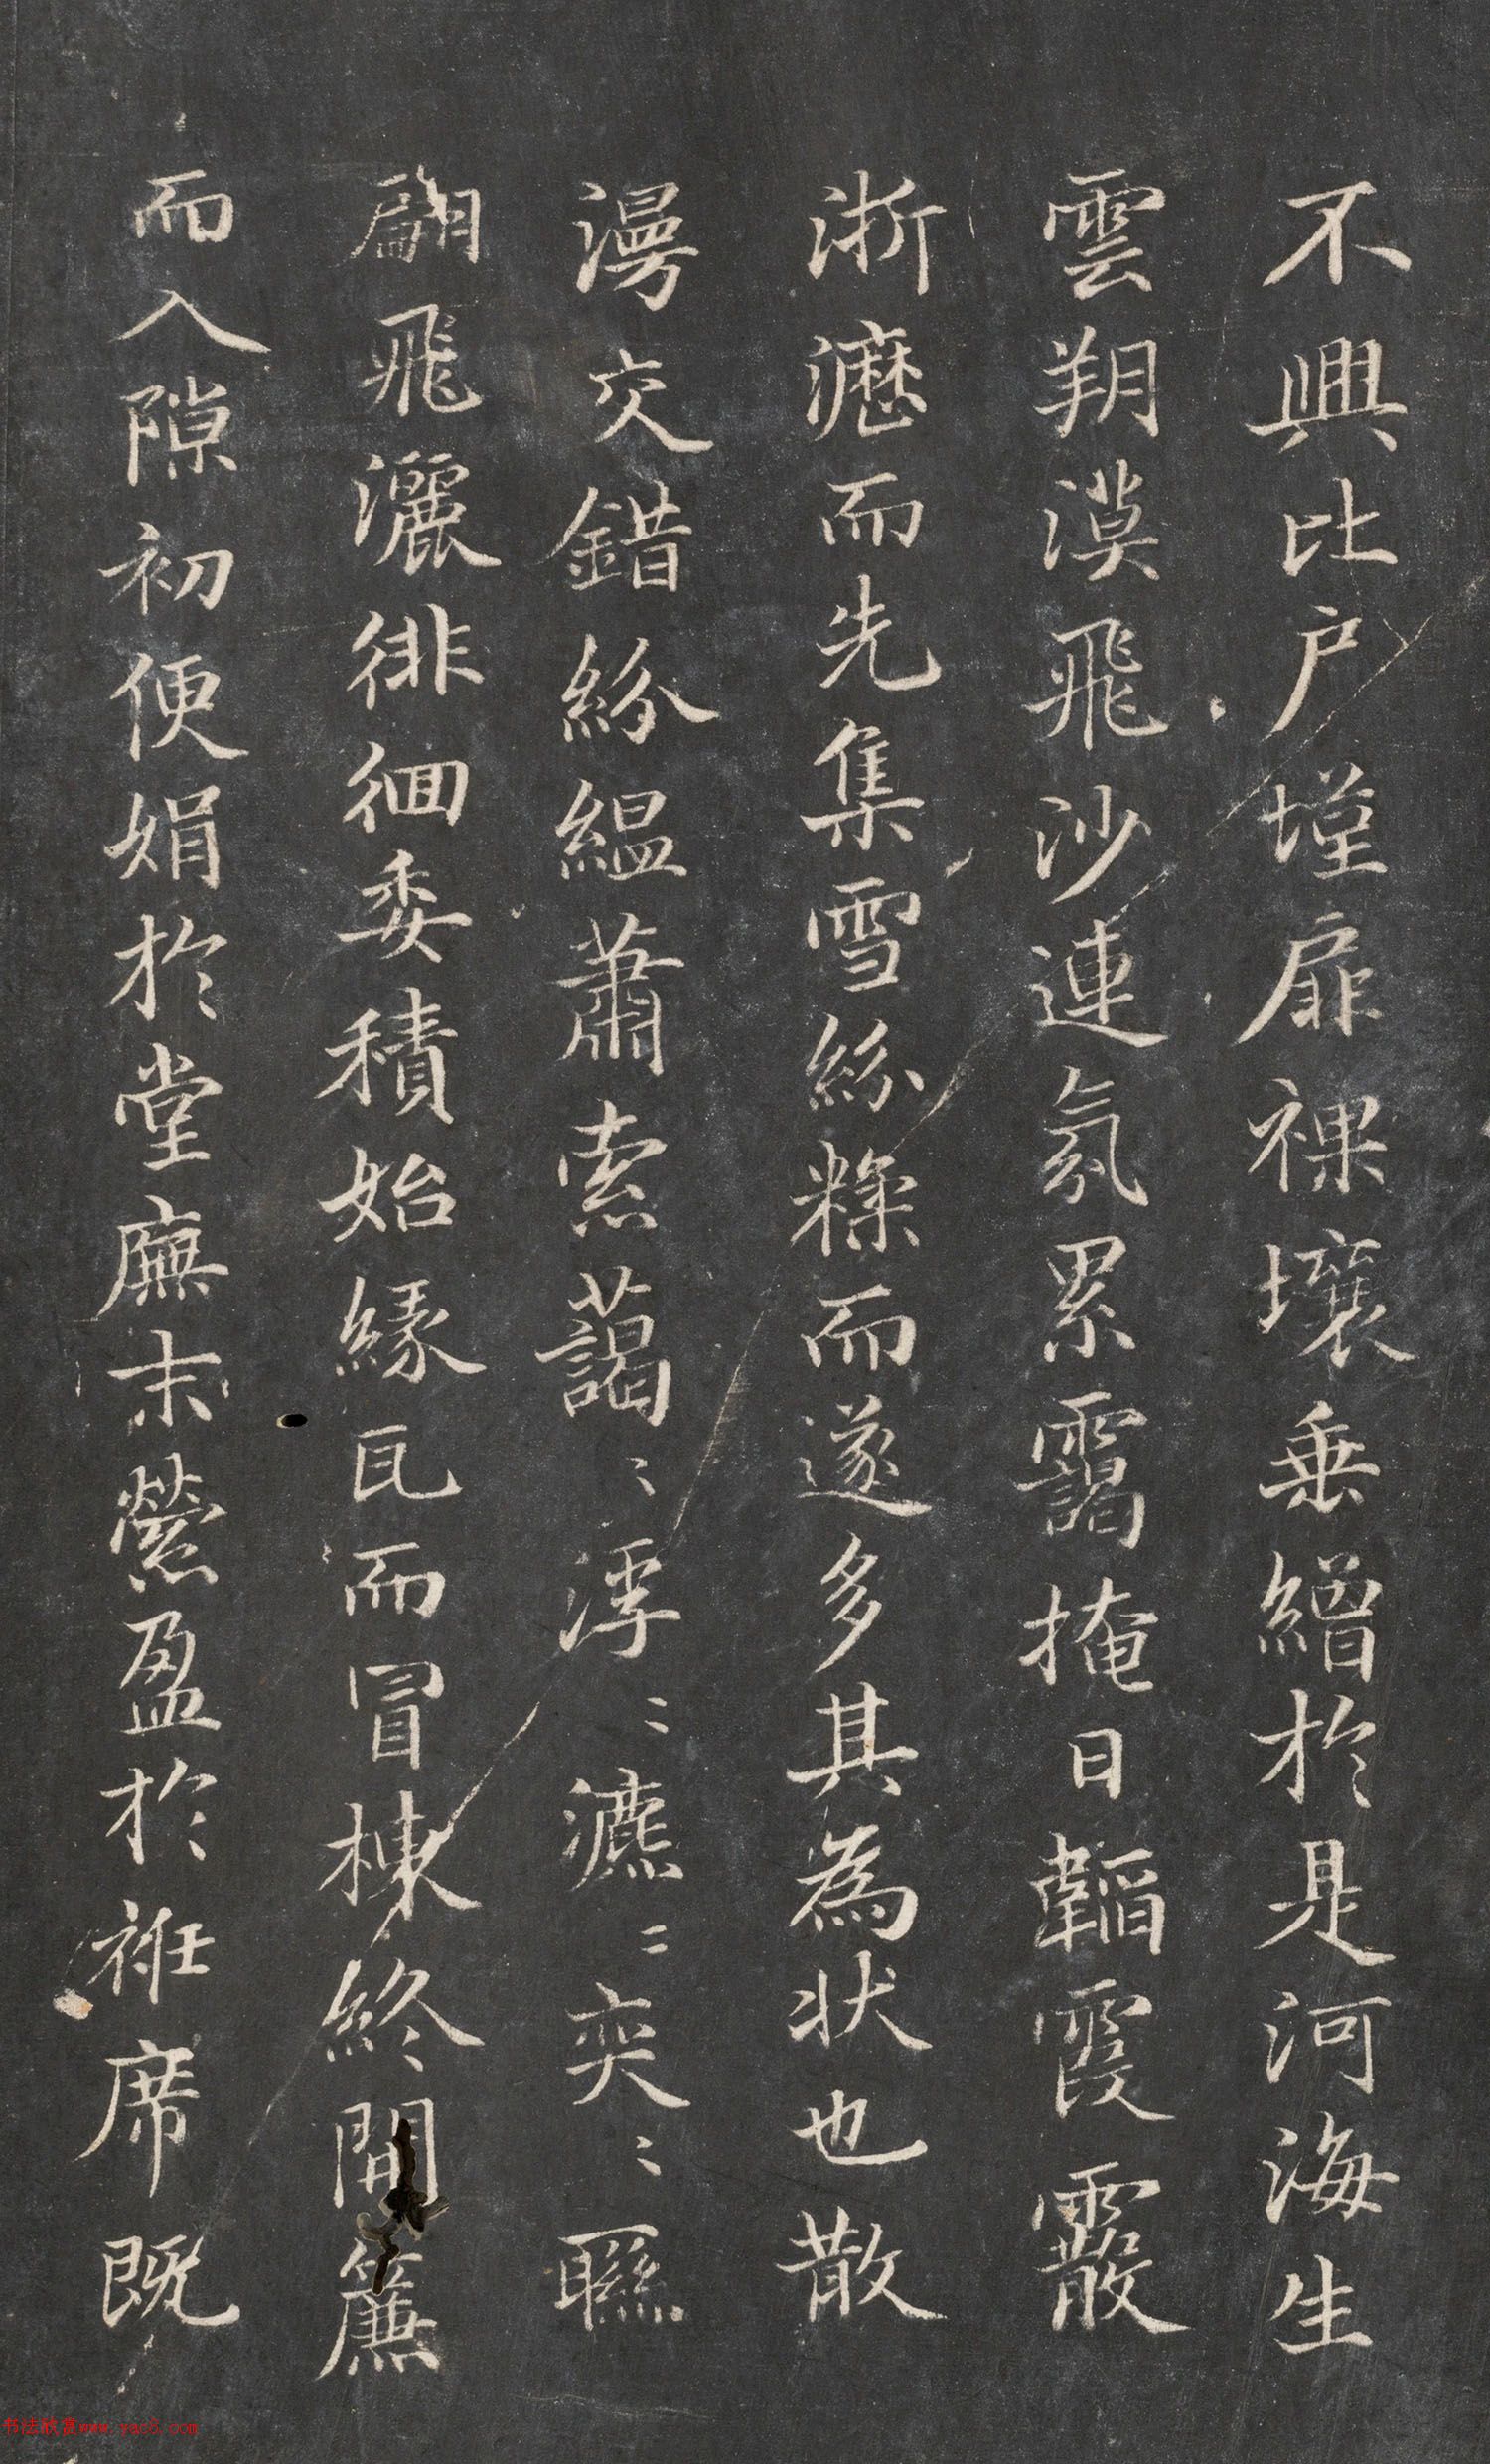 不興比户墐扉裸壤垂繒於是河海生
雲朔漠飛沙連氛累靄掩日韜霞霰
淅瀝而先集雪紛糅而遂多其為状也散
漫交錯紛緼蕭索藹〻浮〻瀌〻奕〻聯
翩飛灑徘徊委積始緣瓦而冒棟終開簾
而入隙初便娟於堂廡末縈盈於帷席既
书法欣赏www.yac8.com